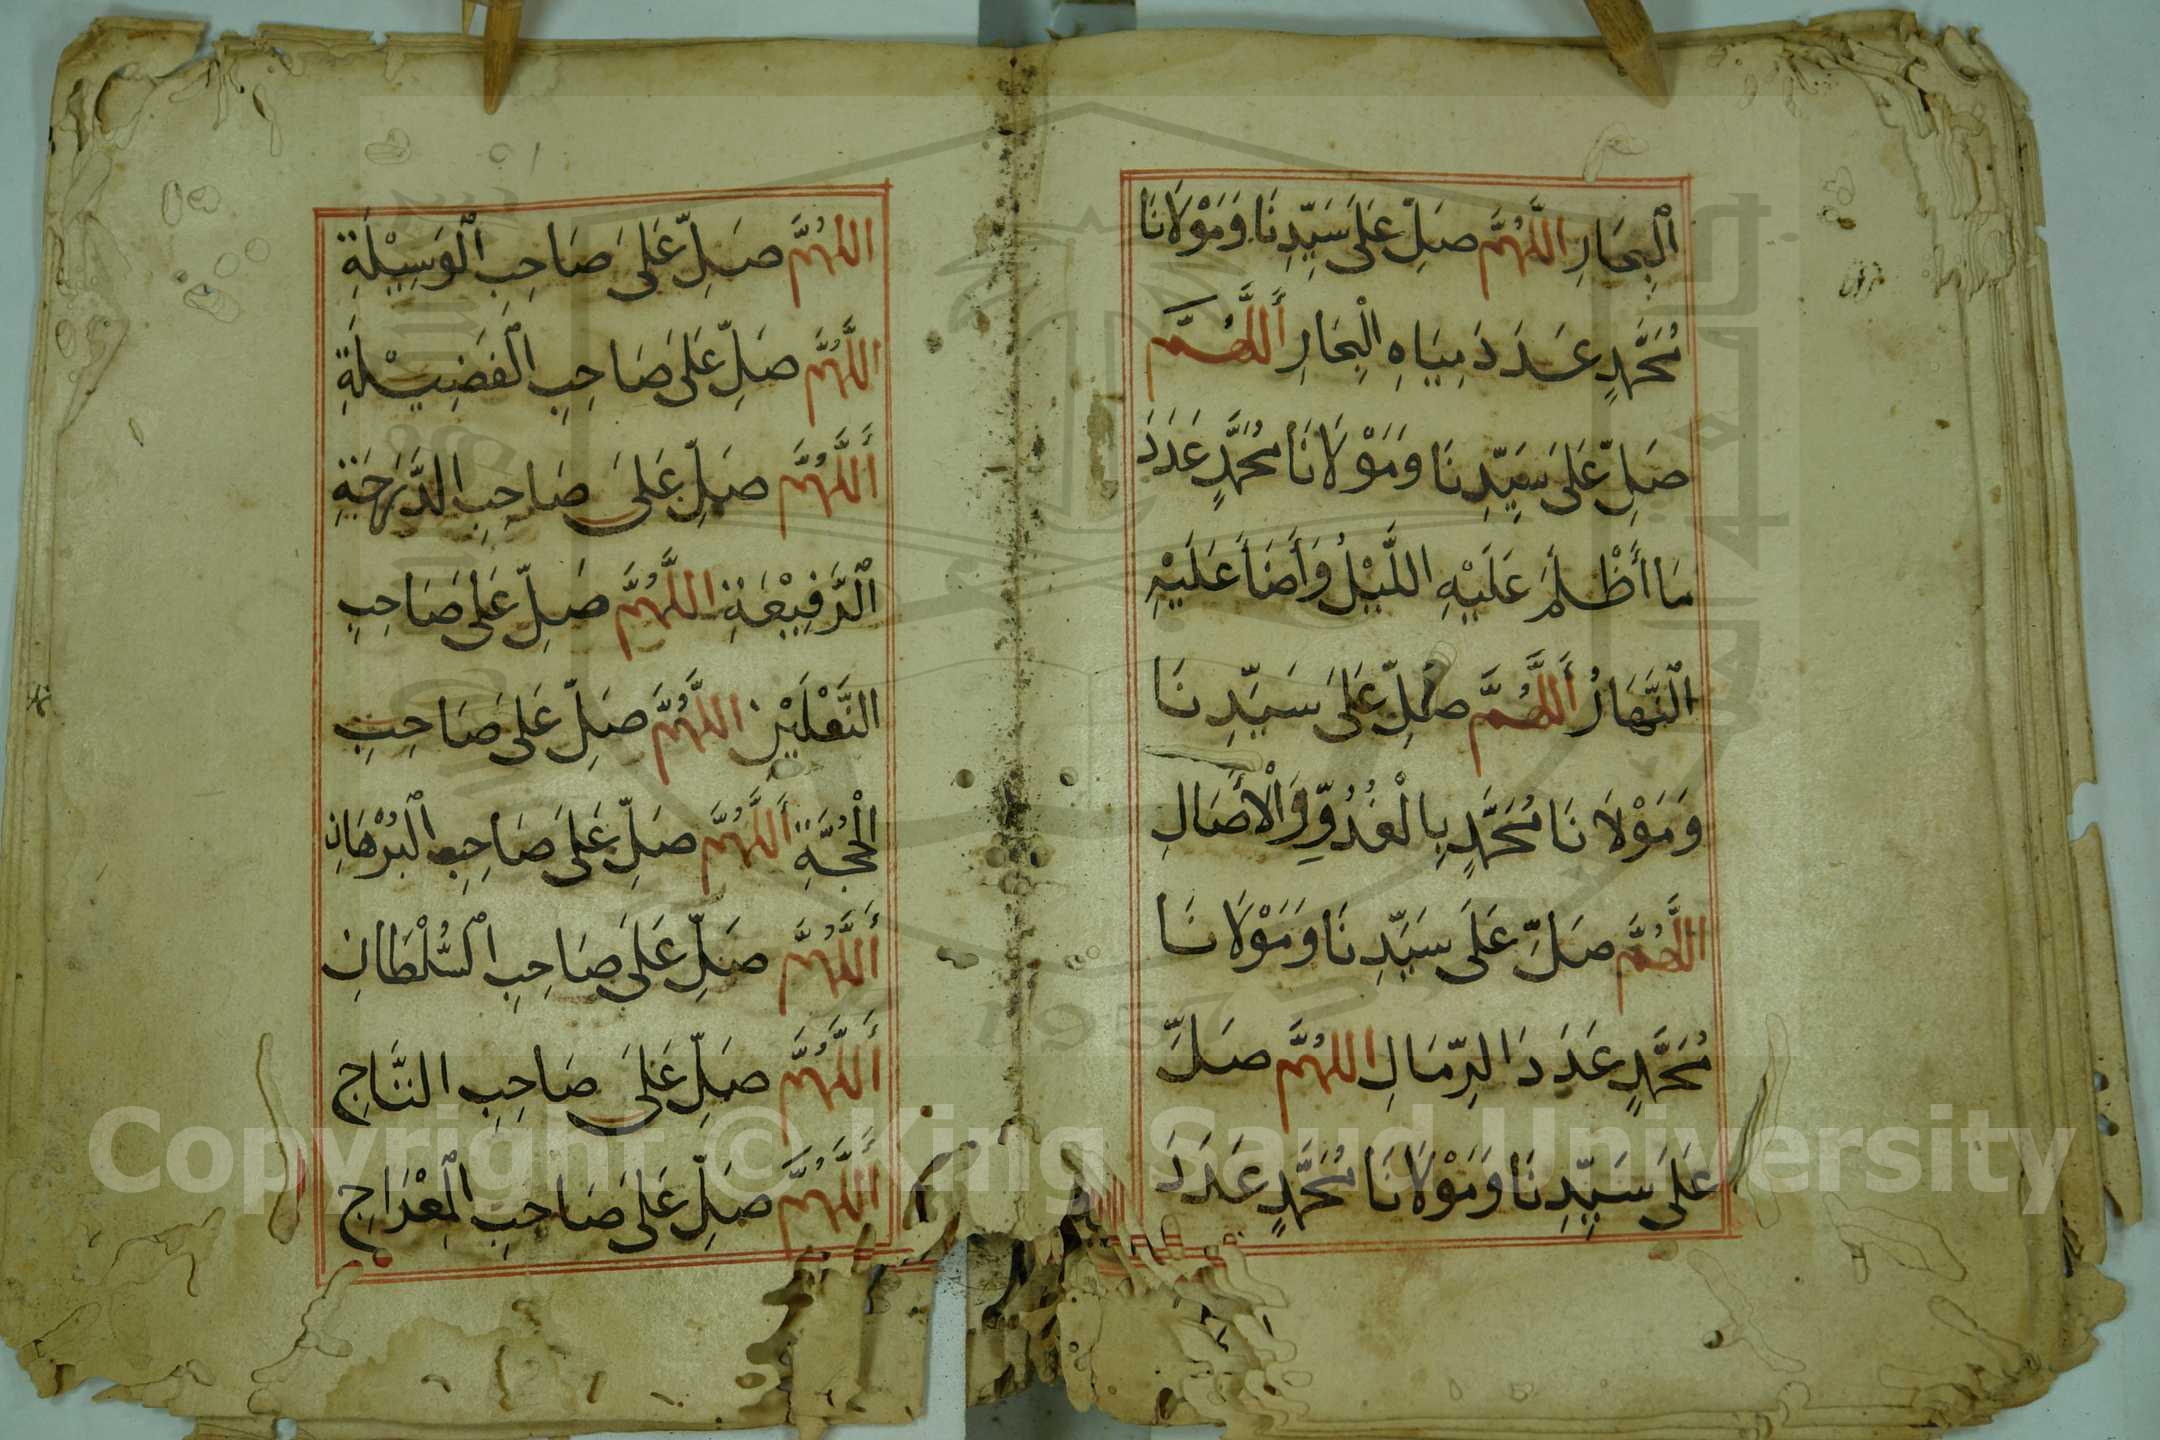 ٱلْبِحَارِ اللَّهُمَّ صَلِّ عَلَىَ سَيِّدِنَا وَمَوْلَانَا
مُحَمَّدٍ عَدَدَ مِيَاهِ الْبِحَارِ أَللَّهُمَّ
صَلِّ عَلَىَ سَيِّدِنَا وَمَوْلَانَا مُحَمَّدٍ عَدَدَ
مَا أَظْلَمَ عَلَيْهِ اللَّيْلُ وَأَضَاَ عَلَيْهِ
ٱلنَّهَارُ أَللَّهُمَّ صَلِّ عَلَىَ سَيِّدِنَا
وَمَوْلَانَا مُحَمَّدٍ بِالْغُدُوِّ وَالْأَصَالِ
اللَّهُمَّ صَلِّ عَلَى سَيِّدِنَا وَمَوْلَانَا
مُحَمَّدٍ عَدَدَ الرِّمَالِ اللهُمَّ صَلِّ
عَلَىَ سَيِّدِنَا وَمَوْلَانَا مُحَمَّدٍ عَدَدَ
اللهُمَّ صَلِّ عَلَىَ صَاحِبِ ٱلْوَسِيْلَةِ
اللَّهُمَّ صَلِّ عَلَىَ صَاحِبِ ٱلْفَضِيْلَةِ
أَللَّهُمَّ صَلِّ عَلَىَ صَاحِبِ الدَّرَجَةِ
ٱلرَّفِيْعَةِ اللَّهُمَّ صَلِّ عَلَىَ صَاحِبِ
النَّعْلَيْنِ اللَّهُمَّ صَلِّ عَلَىَ صَاحِبِ
الْحُجَّةِ أَللَّهُمَّ صَلِّ عَلَىَ صَاحِبِ ٱلْبُرْهَانِ
أَللَّهُمَّ صَلِّ عَلَىَ صَاحِبِ ٱلسُّلْطَانِ
أَللَّهُمَّ صَلِّ عَلَىَ صَاحِبِ التَّاجِ
أَللَّهُمَّ صَلِّ عَلَىَ صَاحِبِ ٱلْمِعْرَاجِ
1957
Copyright © King Saud University